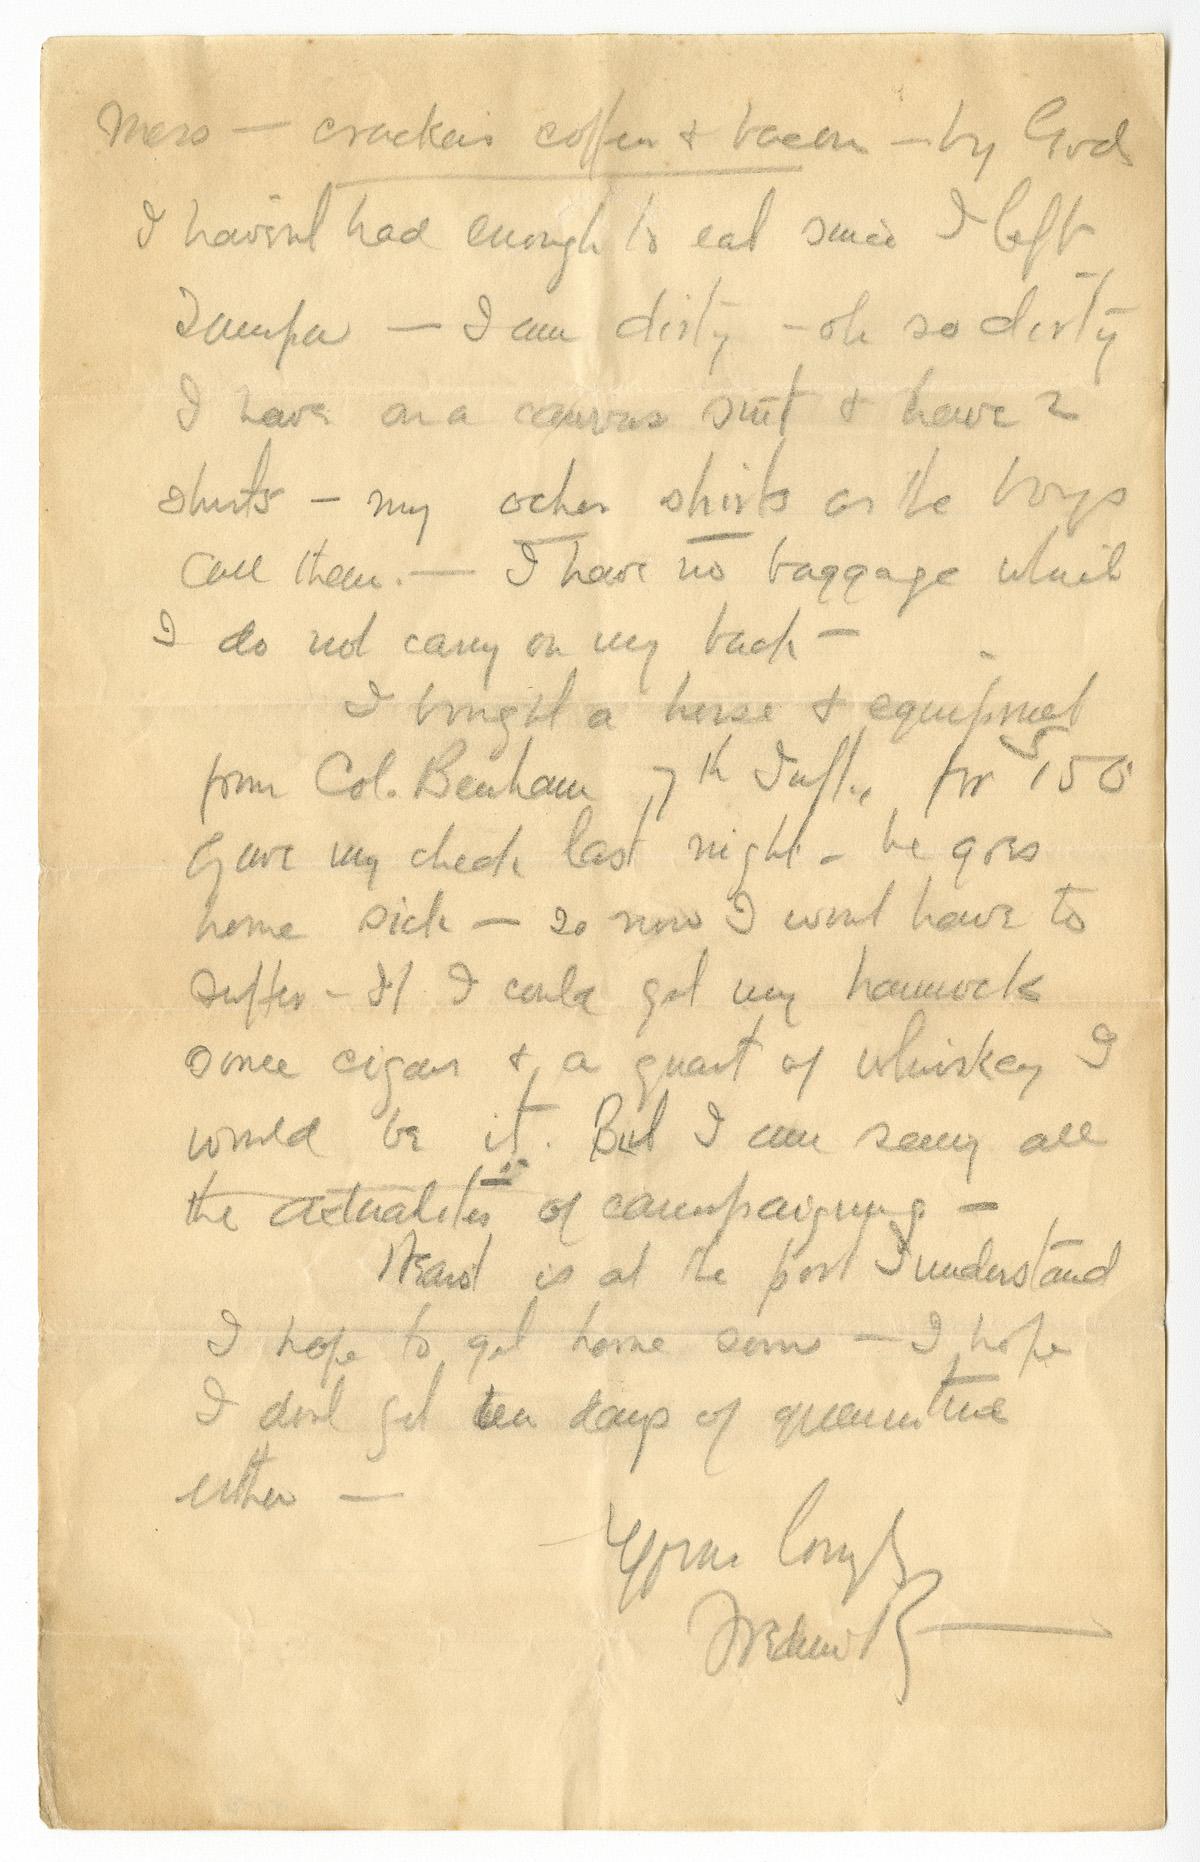 Mess — crackers coffee & bacon — by God
I havint had enough to eat since I left
Tampa — I am dirty — oh so dirty
I have on a canvas suit & have 2
shirts — my other shirts as the boys
call them. — I have no baggage which
I do not carry on my back —
I bought a horse & equipment
from Col. Benham 7th Inft., for $150
gave my check last night — he goes
home sick — so now I wont have to
suffer — If I could get my hammock
some cigars & a quart of whiskey I
would be it. But I am seeing all
the actualities of campaigning —
is at the port I understand
I hope to get home soon — I hope
I dont get ten days of quarantine
either —
Yours lovingly
Frederic R